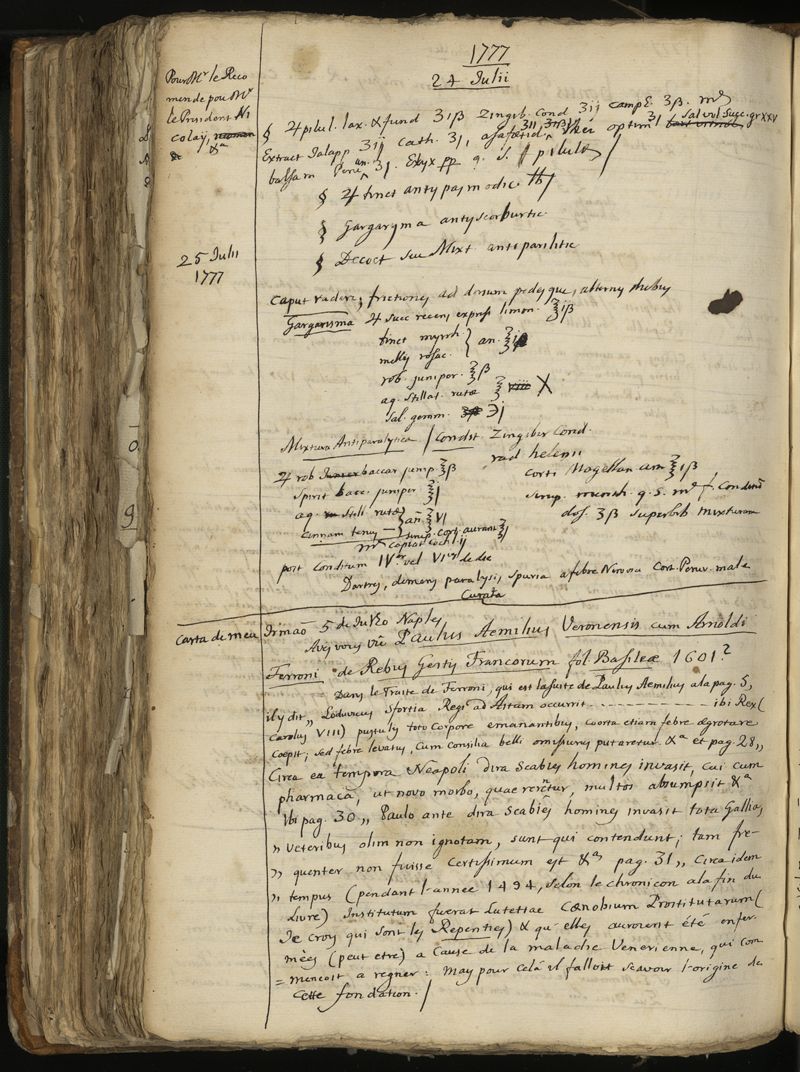 1777
24 Julii
Pour Mr le Reco
mende pou Mr
le Président Ni
colaÿ,
&a
§ ♃ pilul. lax. & fund ʒiß Zingib. Cond ʒij camp ʒß. md
Extract Jalapp ʒij Cath. ʒj, asafœtid optim ʒj Sal vol Succ. gr XXV
balsam Peru an. ʒj. pp q. s. f pilulæ
§ ♃ tinct antyspasmodic ℔j
§ Gargarysma antyscorbutic
25 Julii
1777
§ Decoct seu Mixt antiparilitic
Caput radere, frictiones ad dorsum pedesque, alternis diebus
Gargarisma ♃ succ recens express limon. ℥iß
tinct myrrh
mellis rosac. } an. ℥j
rob. juniper. ℥ß
aq. stillat. rutæ ℥ X
Sal. gemm. ℈j
Mixtura Antiparalytica / Condit Zingiber Cond.
rad helenii
♃ rob baccar junip. ℥ß
corti Magellan am ℥iß
spirit bacc. juniper ℥j
sirup. q. s. md f. Conditū
aq. still. rutæ
dos. ʒß superbib mixturam
Cinnam tenuis } añ ℥vj
sirup. Cort. aurant ℥j
md capiat coch. ij
post Conditum IVor vel VIes de die
Dartres, demens paralysis, spuria a febre Nervosa Cort. Peruv. male
Curata
Carta de meu Irmaõ 5 de Julho Naples
Avez vous vû Paulus Aemilius Veronensis cum Arnoldi
Ferroni de Rebus Gestis Francorum fol. Basileæ 1601?
Dans le Traite de Ferroni, qui est la suite de Paulus Aemilius a la pag. 5,
il y dit „ Lodovicus Sfortia Regi ad Astam occurrit - - - - - - - - ibi Rex (
Carolus VIII) pustulis toto corpore emanantibus, coorta etiam febre ægrotare
cœpit; sed febre levatus, cum consilia belli omissurus putaretur. &a et pag. 28 „
Circa ea tempora Neapoli dira scabies homines invasit, cui cum
pharmaca, ut novo morbo, quærerētur, multos absumpsit &a
Ibi pag. 30 „ Paulo ante dira scabies homines invasit tota Gallia,
„ veteribus olim non ignotam, sunt qui contendunt; tam fre-
„ quenter non fuisse certissimum est &a pag. 31 „ Circa idem
„ tempus (pendant l'annee 1494, selon le chronicon a la fin du
Livre) Institutum fuerat Lutetiae Cœnobium Prostitutarum (
Je croy qui sont les Repenties) & qu'elles auroient été enfer-
mées (peut etre) a Cause de la maladie Venerienne, qui com
= mencoit a regner: Mays pour celà il falloit scavoir l'origine de
cette fondation. /